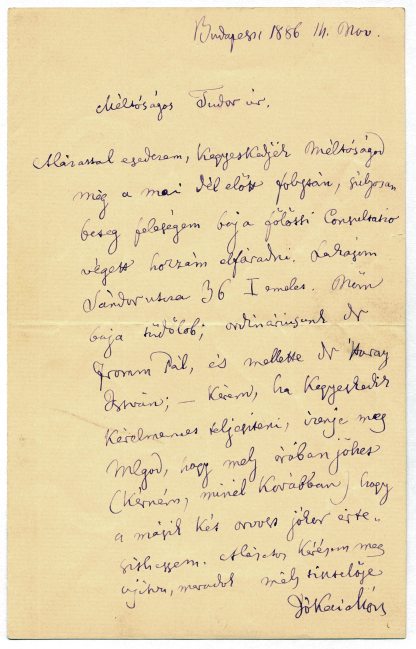 Budapest 1886 14. Nov.
Méltóságos Tudor úr,
Alázattal esedezem, kegyeskedjék Méltóságod
még a mai dél előtt folytán, súlyosan
beteg feleségem baja fölötti Consultatio
végett hozzám elfáradni. Lakásom
Sándor utcza 36 I emelet. Nőm
baja tüdőlob; ordináriusunk dr
Pál, és mellette dr
István; – Kérem, ha kegyeskedik
kérelmemet teljesíteni, izenje meg
Mlgod, hogy mely órában jöhet
(kérném, minél korábban) hogy
a másik két orvost jókor érte-
síthessem. Alázatos kérésem meg
ujítva, maradok mély tisztelője
Jókai Mór